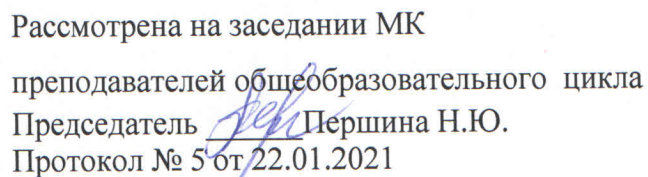 Рассмотрена на заседании МК
преподавателей общеобразовательного цикла
Председатель ______Першина Н.Ю.
Протокол № 5 от 22.01.2021